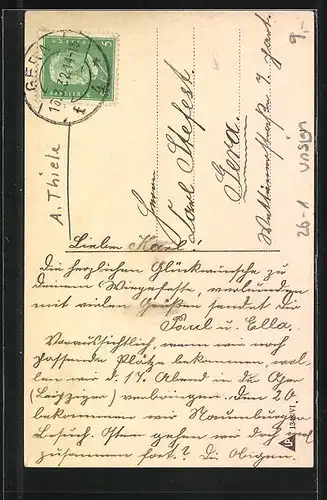 GERA
5
9.-
A. Thiele
26-1
unsign
Herrn
Karl Stefest
Gera
7. part.
Lieber Karl!
Die herzlichen Glückwünsche zu
Deinem Wiegefeste, verbunden
mit vielen Grüßen sendet Dir
Paul u. Ella.
Voraussichtlich, wenn wir noch
passende Plätze bekommen, wol-
len wir d. 17. Abend in die Oper
(Leipziger) verbringen. Den 20.
bekommen wir Naumburger
Besuch. Osten gehen wir doch
zusammen fort? Die Obigen.
1348/VI